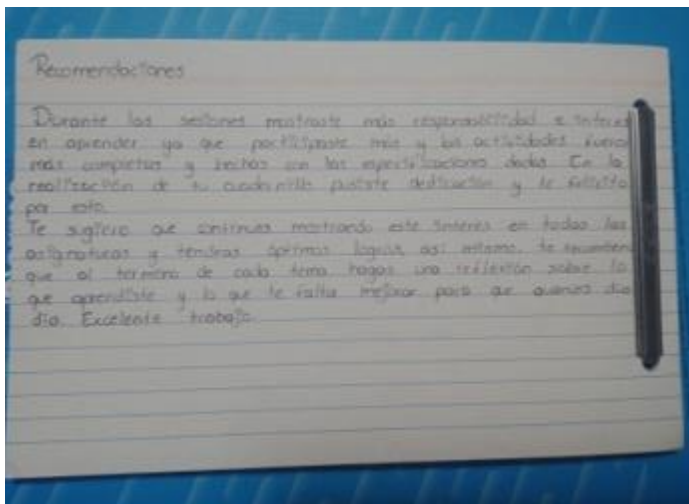 Recomendaciones
Durante las sesiones mostraste más responsabilidad e interes
en aprender ya que participaste más y las actividades fueron
más completas y hechas con las especificaciones dadas En la
realización de tu cuadernillo pusiste dedicación y te felicito
por esto.
Te sugiero que continues mostrando este interes en todas las
asignaturas y tendras óptimos logros así mismo, te
que al termino de cada tema hagas una reflexión sobre lo
que aprendiste y lo que te falta mejorar para que día
día. Excelente trabajo.